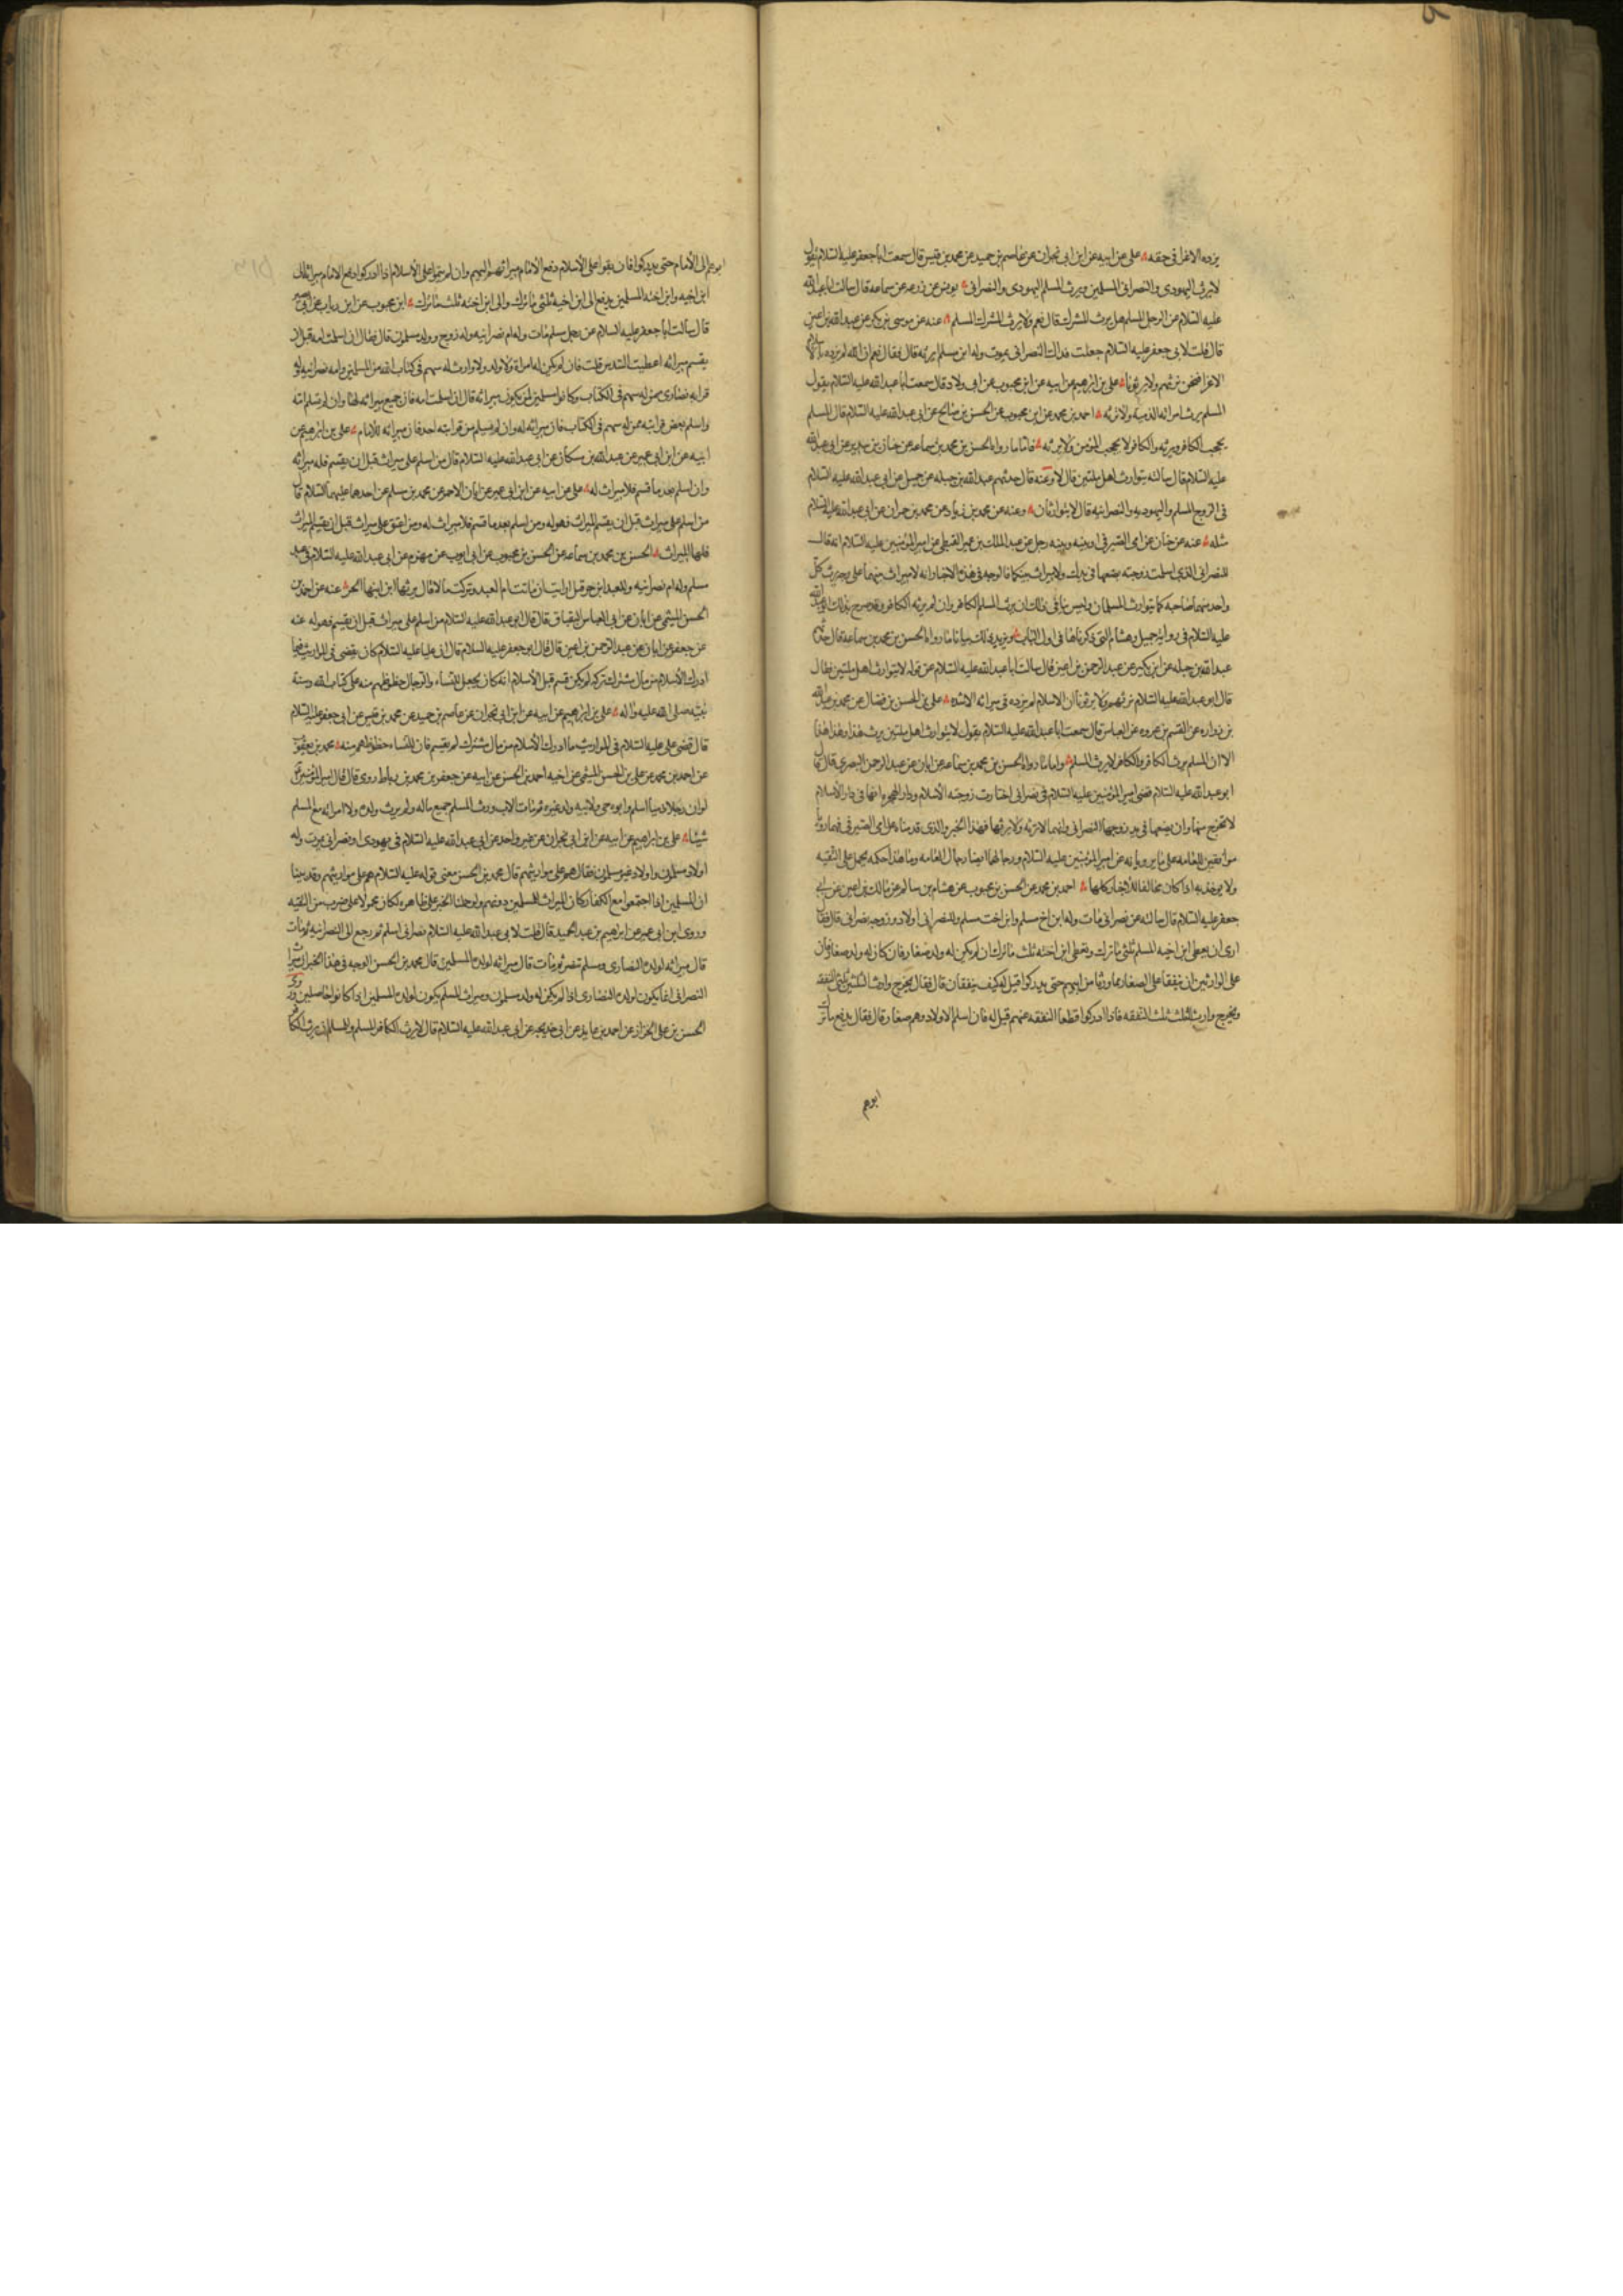 يزده الا عزا فى حقه علي عن ابيه عن ابن ابى نجران عن عاصم بن حميد عن محمد بن قيس قال سمعت ابا جعفر عليه السلام يقول
لا يرث اليهودى والنصرانى المسلمين ويرث المسلم اليهودى والنصرانى يونس عن زرعه عن سماعه قال سالت ابا عبد الله
عليه السلام عن الرجل المسلم هل يرث المشرك قال نعم ولا يرث المشرك المسلم عنه عن موسى بن بكر عن عبد الله بن اعين
قال قلت لابى جعفر عليه السلام جعلت فداك النصرانى يموت وله ابن مسلم يرثه قال فقال نعم ان الله لم يزده بالاسلام
الا عزا فنحن نرثهم ولا يرثونا علي بن ابرهيم عن ابيه عن ابن محبوب عن ابى ولاد قال سمعت ابا عبد الله عليه السلام يقول
المسلم يرث امراته الذميه ولا ترثه احمد بن محمد عن ابن محبوب عن الحسن بن صالح عن ابى عبد الله عليه السلام قال المسلم
يحجب الكافر ويرثه والكافر لا يحجب المؤمن ولا يرثه فاما ما رواه الحسن بن محمد بن سماعه عن حنان بن سدير عن ابى عبد الله
عليه السلام قال سالته يتوارث اهل ملتين قال لا وعنه قال حدثهم عبد الله بن جبله عن جميل عن ابى عبد الله عليه السلام
فى الزوج المسلم واليهوديه والنصرانيه قال لا يتوارثان وعنه عن محمد بن زياد عن محمد بن حمران عن ابى عبد الله عليه السلام
مثله عنه عن حنان عن امى الصيرفى او بينه وبينه رجل عن عبد الملك بن عمير القبطى عن امير المؤمنين عليه السلام انه قال
للنصرانى الذى اسلمت زوجته بضعها فى يدك ولا ميراث بينكما فالوجه فى هذه الاخبار انه لا ميراث بينهما على وجه يرث كل
واحد منهما صاحبه كما يتوارث المسلمان وليس ينافى ذلك ان يرث المسلم الكافر وان لم يرثه الكافر وقد صرح بذلك ابو عبد الله
عليه السلام فى روايه جميل وهشام التى ذكرناها فى اول الباب ويزيد ذلك بيانا ما رواه الحسن بن محمد بن سماعه قال حدثهم
عبد الله بن جبله عن ابن بكير عن عبد الرحمن بن اعين قال سالت ابا عبد الله عليه السلام عن قوله لا يتوارث اهل ملتين فقال
قال ابو عبد الله عليه السلام نرثهم ولا يرثونا ان الاسلام لم يزده فى ميراثه الا شده علي بن الحسن بن فضال عن محمد بن عبد الله
بن زراره عن القسم بن عروه عن العباس قال سمعت ابا عبد الله عليه السلام يقول لا يتوارث اهل ملتين يرث هذا هذا وهذا هذا
الا ان المسلم يرث الكافر والكافر لا يرث المسلم واما ما رواه الحسن بن محمد بن سماعه عن ابان عن عبد الرحمن البصرى قال قال
ابو عبد الله عليه السلام قضى امير المؤمنين عليه السلام فى نصرانى اختارت زوجته الاسلام ودار الهجره انها فى دار الاسلام
لا تخرج منها وان بضعها فى يد زوجها النصرانى وانها لا ترثه ولا يرثها فهذا الخبر والذى قدمناه عن امى الصيرفى فيما رواه
موافقين للعامه على ما يروونه عن امير المؤمنين عليه السلام ورجالهما ايضا رجال العامه وما هذا حكمه يحمل على التقيه
ولا يوخذ به اذا كان مخالفا للاخبار كلها احمد بن محمد عن الحسن بن محبوب عن هشام بن سالم عن مالك بن اعين عن ابى
جعفر عليه السلام قال سالته عن نصرانى مات وله ابن اخ مسلم وابن اخت مسلم وللنصرانى اولاد وزوجه نصرانى قال فقال
ارى ان يعطى ابن اخيه المسلم ثلثى ما ترك ويعطى ابن اخته ثلث ما ترك ان لم يكن له ولد صغار فان كان له ولد صغار فان
على الوارثين ان ينفقا على الصغار مما ورثا من ابيهم حتى يدركوا قيل له كيف ينفقان قال فقال يخرج وارث الثلثين ثلثى النفقه
ويخرج وارث الثلث ثلث النفقه فاذا ادركوا قطعا النفقه عنهم قيل له فان اسلم الاولاد وهم صغار قال فقال يدفع ما ترك
ابوهم
ابوهم الى الامام حتى يدركوا فان بقوا على الاسلام دفع الامام ميراثهم اليهم وان لم يبقوا على الاسلام اذا ادركوا دفع الامام ميراثه الى
ابن اخيه وابن اخته المسلمين يدفع الى ابن اخيه ثلثى ما ترك والى ابن اخته ثلث ما ترك ابن محبوب عن ابن رباب عن ابى بصير
قال سالت ابا جعفر عليه السلام عن رجل مسلم مات وله ام نصرانيه وله زوج وولد مسلمون قال فقال ان اسلمت امه قبل ان
يقسم ميراثه اعطيت السدس قلت فان لم يكن له امراة ولا ولد ولا وارث له سهم فى كتاب الله من المسلمين وامه نصرانيه وله
قرابه نصارى ممن له سهم فى الكتاب وكانوا مسلمين لمن يكون ميراثه قال ان اسلمت امه فان جميع ميراثه لها وان لم تسلم امه
واسلم بعض قرابته ممن له سهم فى الكتاب فان ميراثه له وان لم يسلم من قرابته احد فان ميراثه للامام علي بن ابرهيم عن
ابيه عن ابن ابى عمير عن عبد الله بن مسكان عن ابى عبد الله عليه السلام قال من اسلم على ميراث قبل ان يقسم فله ميراثه
وان اسلم بعد ما قسم فلا ميراث له علي عن ابيه عن ابن ابى عمير عن ابان الاحمر عن محمد بن مسلم عن احدهما عليهما السلام قال
من اسلم على ميراث قبل ان يقسم الميراث فهو له ومن اسلم بعد ما قسم فلا ميراث له ومن اعتق على ميراث قبل ان يقسم الميراث
فلها الميراث الحسن بن محمد بن سماعه عن الحسن بن محبوب عن ابى ايوب عن مهزم عن ابى عبد الله عليه السلام فى عبد
مسلم وله ام نصرانيه وللعبد ابن حر قيل ارايت ان ماتت ام العبد وتركت مالا قال يرثها ابن ابنها الحر عنه عن احمد بن
الحسن الميثمى عن ابان عن ابى العباس البقباق قال قال ابو عبد الله عليه السلام من اسلم على ميراث قبل ان يقسم فهو له عنه
عن جعفر عن ابان عن عبد الرحمن بن اعين قال قال ابو جعفر عليه السلام قال ان عليا عليه السلام كان يقضى فى المواريث فيما
ادرك الاسلام من مال مشرك تركه لم يكن قسم قبل الاسلام انه كان يجعل للنساء والرجال حظوظهم منه على كتاب الله وسنة
نبيه صلى الله عليه واله علي بن ابرهيم عن ابيه عن ابن ابى نجران عن عاصم بن حميد عن محمد بن قيس عن ابى جعفر عليه السلام
قال قضى علي عليه السلام فى المواريث ما ادرك الاسلام من مال مشرك لم يقسم فان للنساء حظوظهم منه محمد بن يعقوب
عن احمد بن محمد عن علي بن الحسن الميثمى عن اخيه احمد بن الحسن عن ابيه عن جعفر بن محمد بن رباط روى قال قال امير المؤمنين
لو ان رجلا ذميا اسلم وابوه حى ولابيه ولد غيره ثم مات الاب ورث المسلم جميع ماله ولم يرث ولده ولا امراته مع المسلم
شيئا علي بن ابراهيم عن ابيه عن ابن ابى نجران عن غير واحد عن ابى عبد الله عليه السلام فى يهودى او نصرانى يموت وله
اولاد مسلمون واولاد غير مسلمون فقال هم على مواريثهم قال محمد بن الحسن معنى قوله عليه السلام هم على مواريثهم وقد بينا
ان المسلمين اذا اجتمعوا مع الكفار كان الميراث للمسلمين دونهم ولو حملنا الخبر على ظاهره لكان محمولا على ضرب من التقيه
وروى ابن ابى عمير عن ابراهيم بن عبد الحميد قال قلت لابى عبد الله عليه السلام نصرانى اسلم ثم رجع الى النصرانيه ثم مات
قال ميراثه لولده النصارى ومسلم تنصر ثم مات قال ميراثه لولده المسلمين قال محمد بن الحسن الوجه فى هذا الخبر ان ميراث
النصرانى انما يكون لولده النصارى اذا لم يكن له ولد مسلمون وميراث المسلم يكون لولده المسلمين اذا كانوا حاصلين وروى
الحسن بن على الخزاز عن احمد بن عايذ عن ابى خديجه عن ابى عبد الله عليه السلام قال لا يرث الكافر المسلم وللمسلم ان يرث الكافر